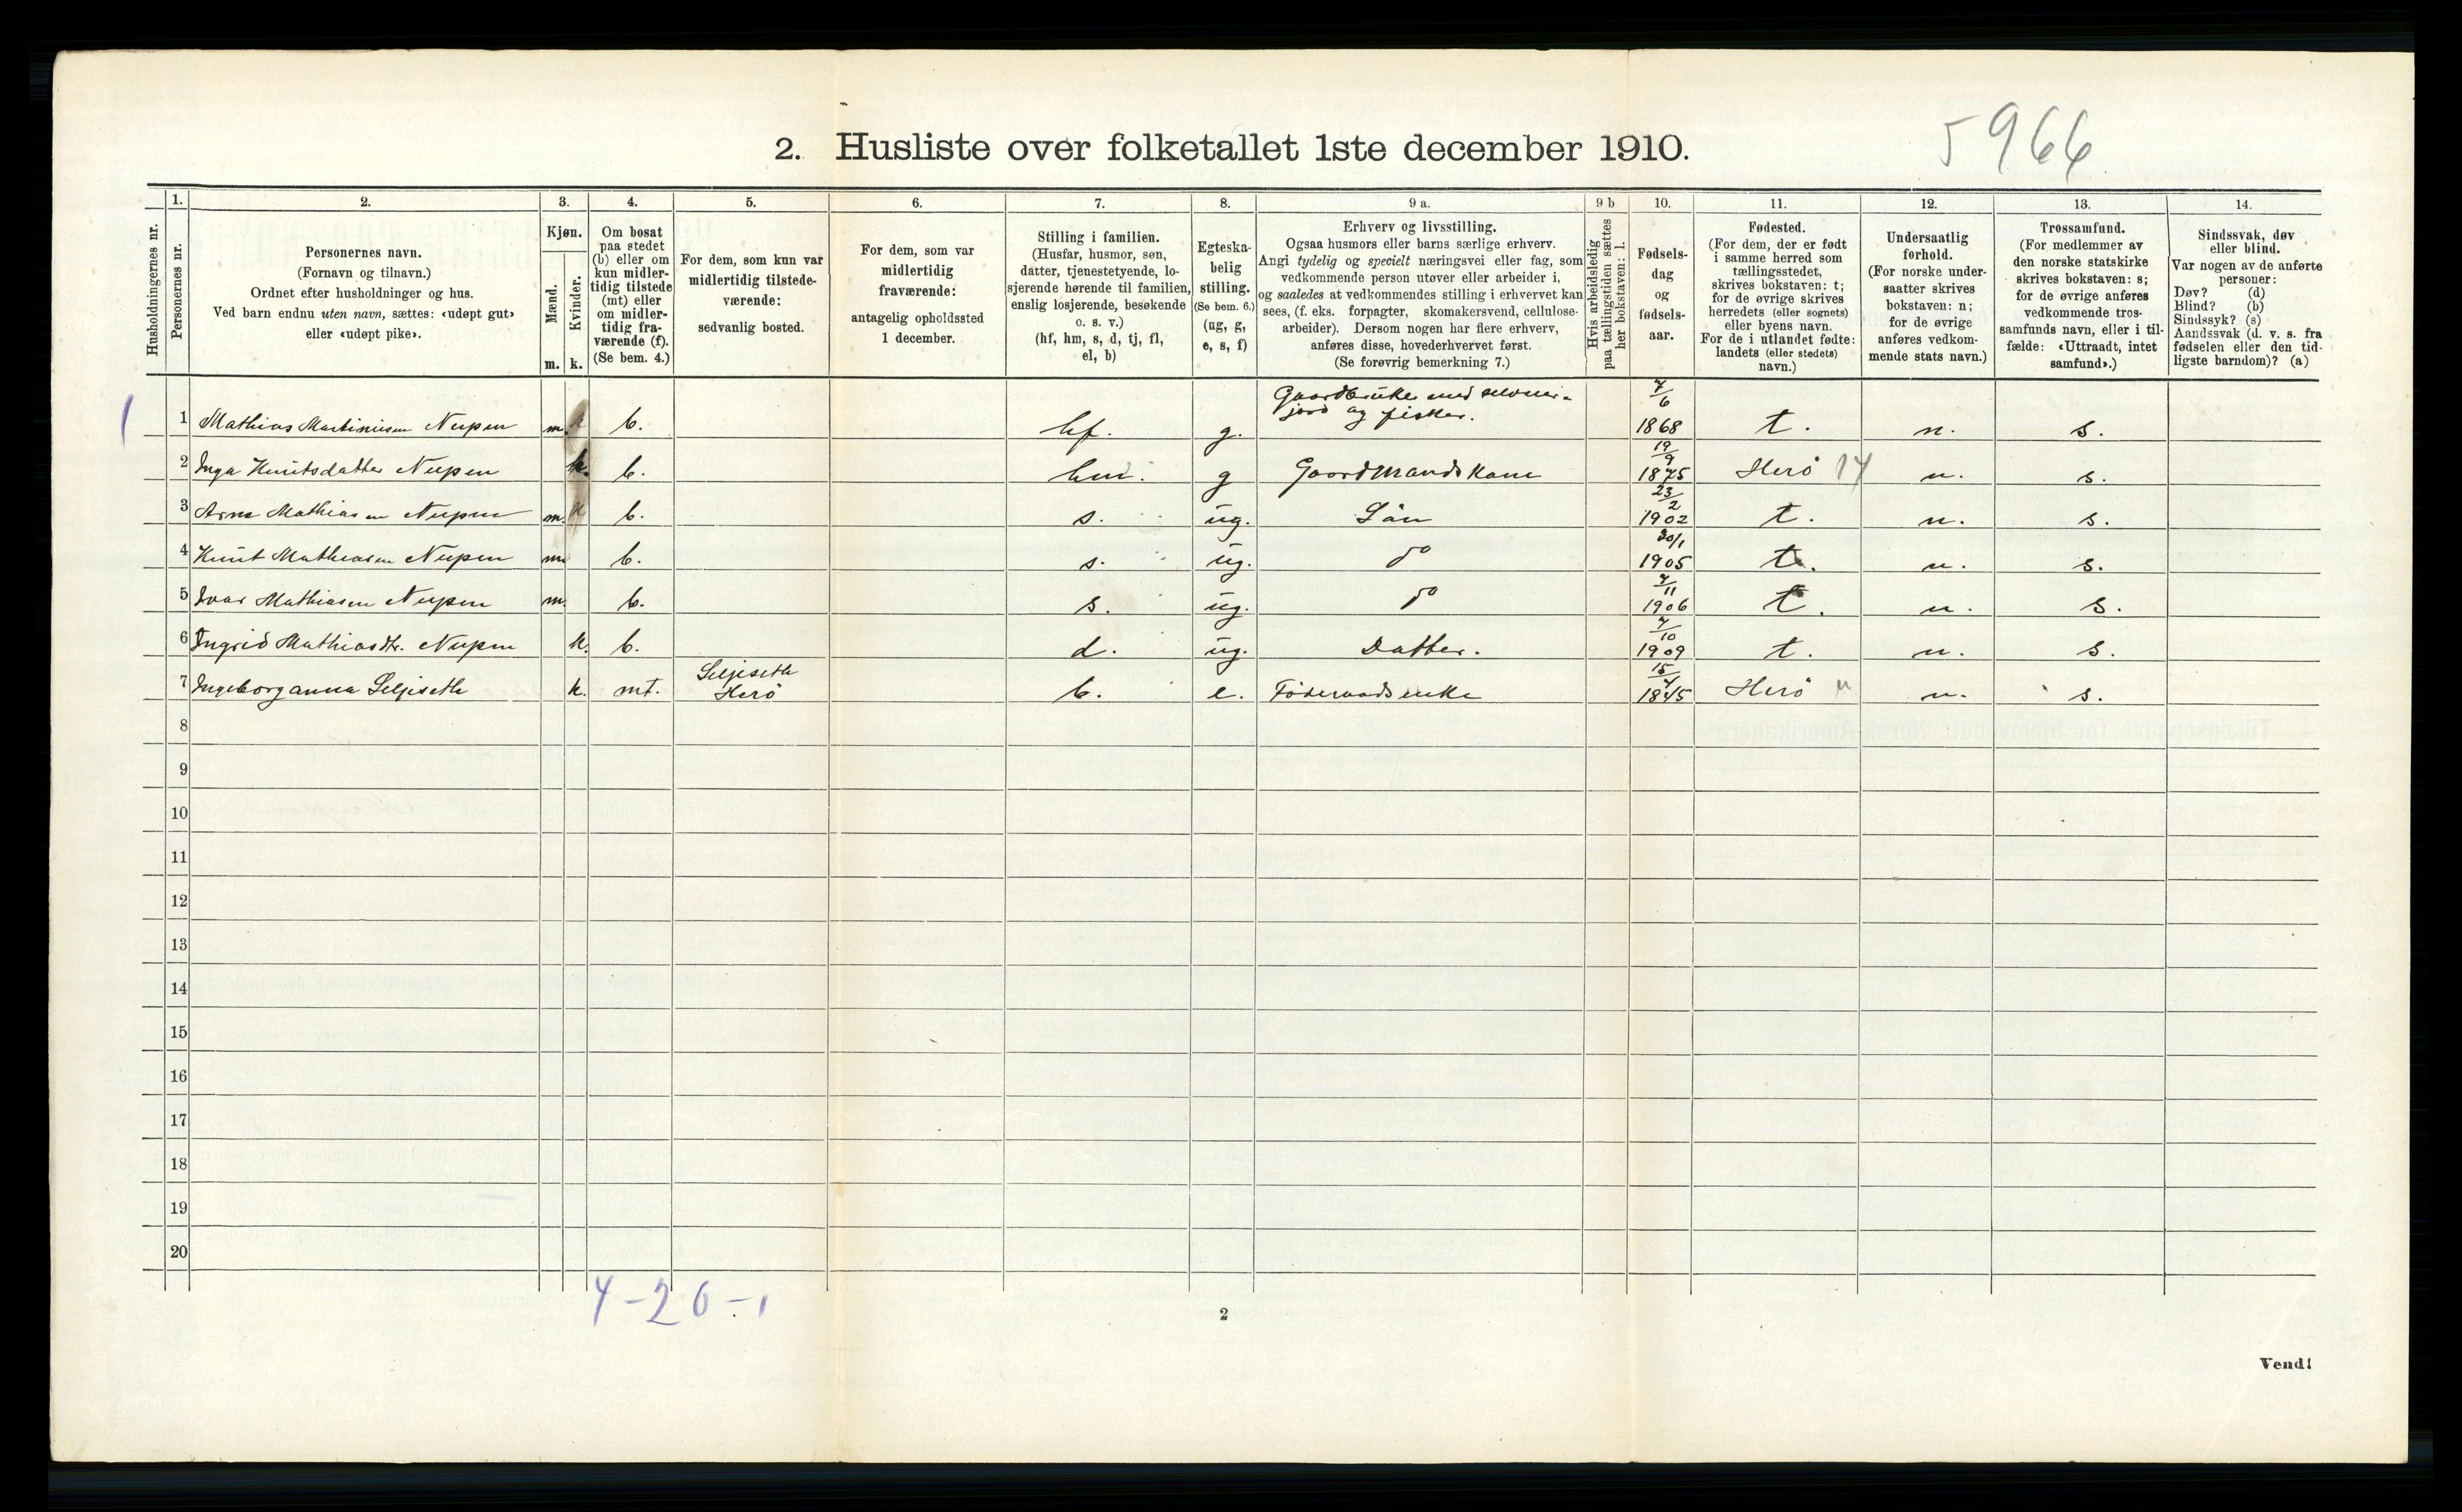 5966
2. Husliste over folketallet 1ste december 1910.
Husholdningernes nr.
1.
Personernes nr.
2.
Personernes navn.
(Fornavn og tilnavn.)
Ordnet efter husholdninger og hus.
Ved barn endnu uten navn, sættes: «udøpt gut»
eller «udøpt pike».
3.
Kjøn.
Mænd.
Kvinder.
m. k.
4.
Om bosat
paa stedet
(b) eller om
kun midler-
tidig tilstede
(mt) eller
om midler-
tidig fra-
værende (f).
(Se bem. 4.)
5.
For dem, som kun var
midlertidig tilstede-
værende:
sedvanlig bosted.
6.
For dem, som var
midlertidig
fraværende:
antagelig opholdssted
1 december.
7.
Stilling i familien.
(Husfar, husmor, søn,
datter, tjenestetyende, lo-
sjerende hørende til familien,
enslig losjerende, besøkende
o. s. v.)
(hf, hm, s, d, tj, fl,
el, b)
8.
Egteska-
belig
stilling.
(Se bem. 6.)
(ug, g,
e, s, f)
9 a.
Erhverv og livsstilling.
Ogsaa husmors eller barns særlige erhverv.
Angi tydelig og specielt næringsvei eller fag, som
vedkommende person utøver eller arbeider i,
og saaledes at vedkommendes stilling i erhvervet kan
sees, (f. eks. forpagter, skomakersvend, cellulose-
arbeider). Dersom nogen har flere erhverv,
anføres disse, hovederhvervet først.
(Se forøvrig bemerkning 7.)
9 b
Hvis arbeidsledig
paa tællingstiden sættes
her bokstaven: l.
10.
Fødsels-
dag
og
fødsels-
aar.
11.
Fødested.
(For dem, der er født
i samme herred som
tællingsstedet,
skrives bokstaven: t;
for de øvrige skrives
herredets (eller sognets)
eller byens navn.
For de i utlandet fødte:
landets (eller stedets)
navn.)
12.
Undersaatlig
forhold.
(For norske under-
saatter skrives
bokstaven: n;
for de øvrige
anføres vedkom-
mende stats navn.)
13.
Trossamfund.
(For medlemmer av
den norske statskirke
skrives bokstaven: s;
for de øvrige anføres
vedkommende tros-
samfunds navn, eller i til-
fælde: «Uttraadt, intet
samfund».)
14.
Sindssvak, døv
eller blind.
Var nogen av de anførte
personer:
Døv? (d)
Blind? (b)
Sindssyk? (s)
Aandssvak (d. v. s. fra
fødselen eller den tid-
ligste barndom)? (a)
1 Mathias Martinusen Nupen m. b. hf. g. Gaardbruker med selveier-
jord og fisker. 7/6 1868 t. n. s.
2 Inga Knutsdatter Nupen k. b. hm. g Gaardmandskone 19/9 1875 Herö 14 n. s.
3 Arne Mathiasen Nupen m. b. s. ug. Sön 23/2 1902 t. n. s.
4 Knut Mathiasen Nupen m b. s. ug. do 20/1 1905 t. n. s.
5 Ivar Mathiasen Nupen m. b. s. ug. do 7/11 1906 t. n. s.
6 Ingrid Mathiasdtr. Nupen k. b. d. ug. Datter. 7/10 1909 t. n. s.
7 Ingeborganna Seljeseth k. mt. Seljeseth
Herö b. e. Föderaadsenke 15/4 1845 Herö " n. s.
8
9
10
11
12
13
14
15
16
17
18
19
20
2
Vend!